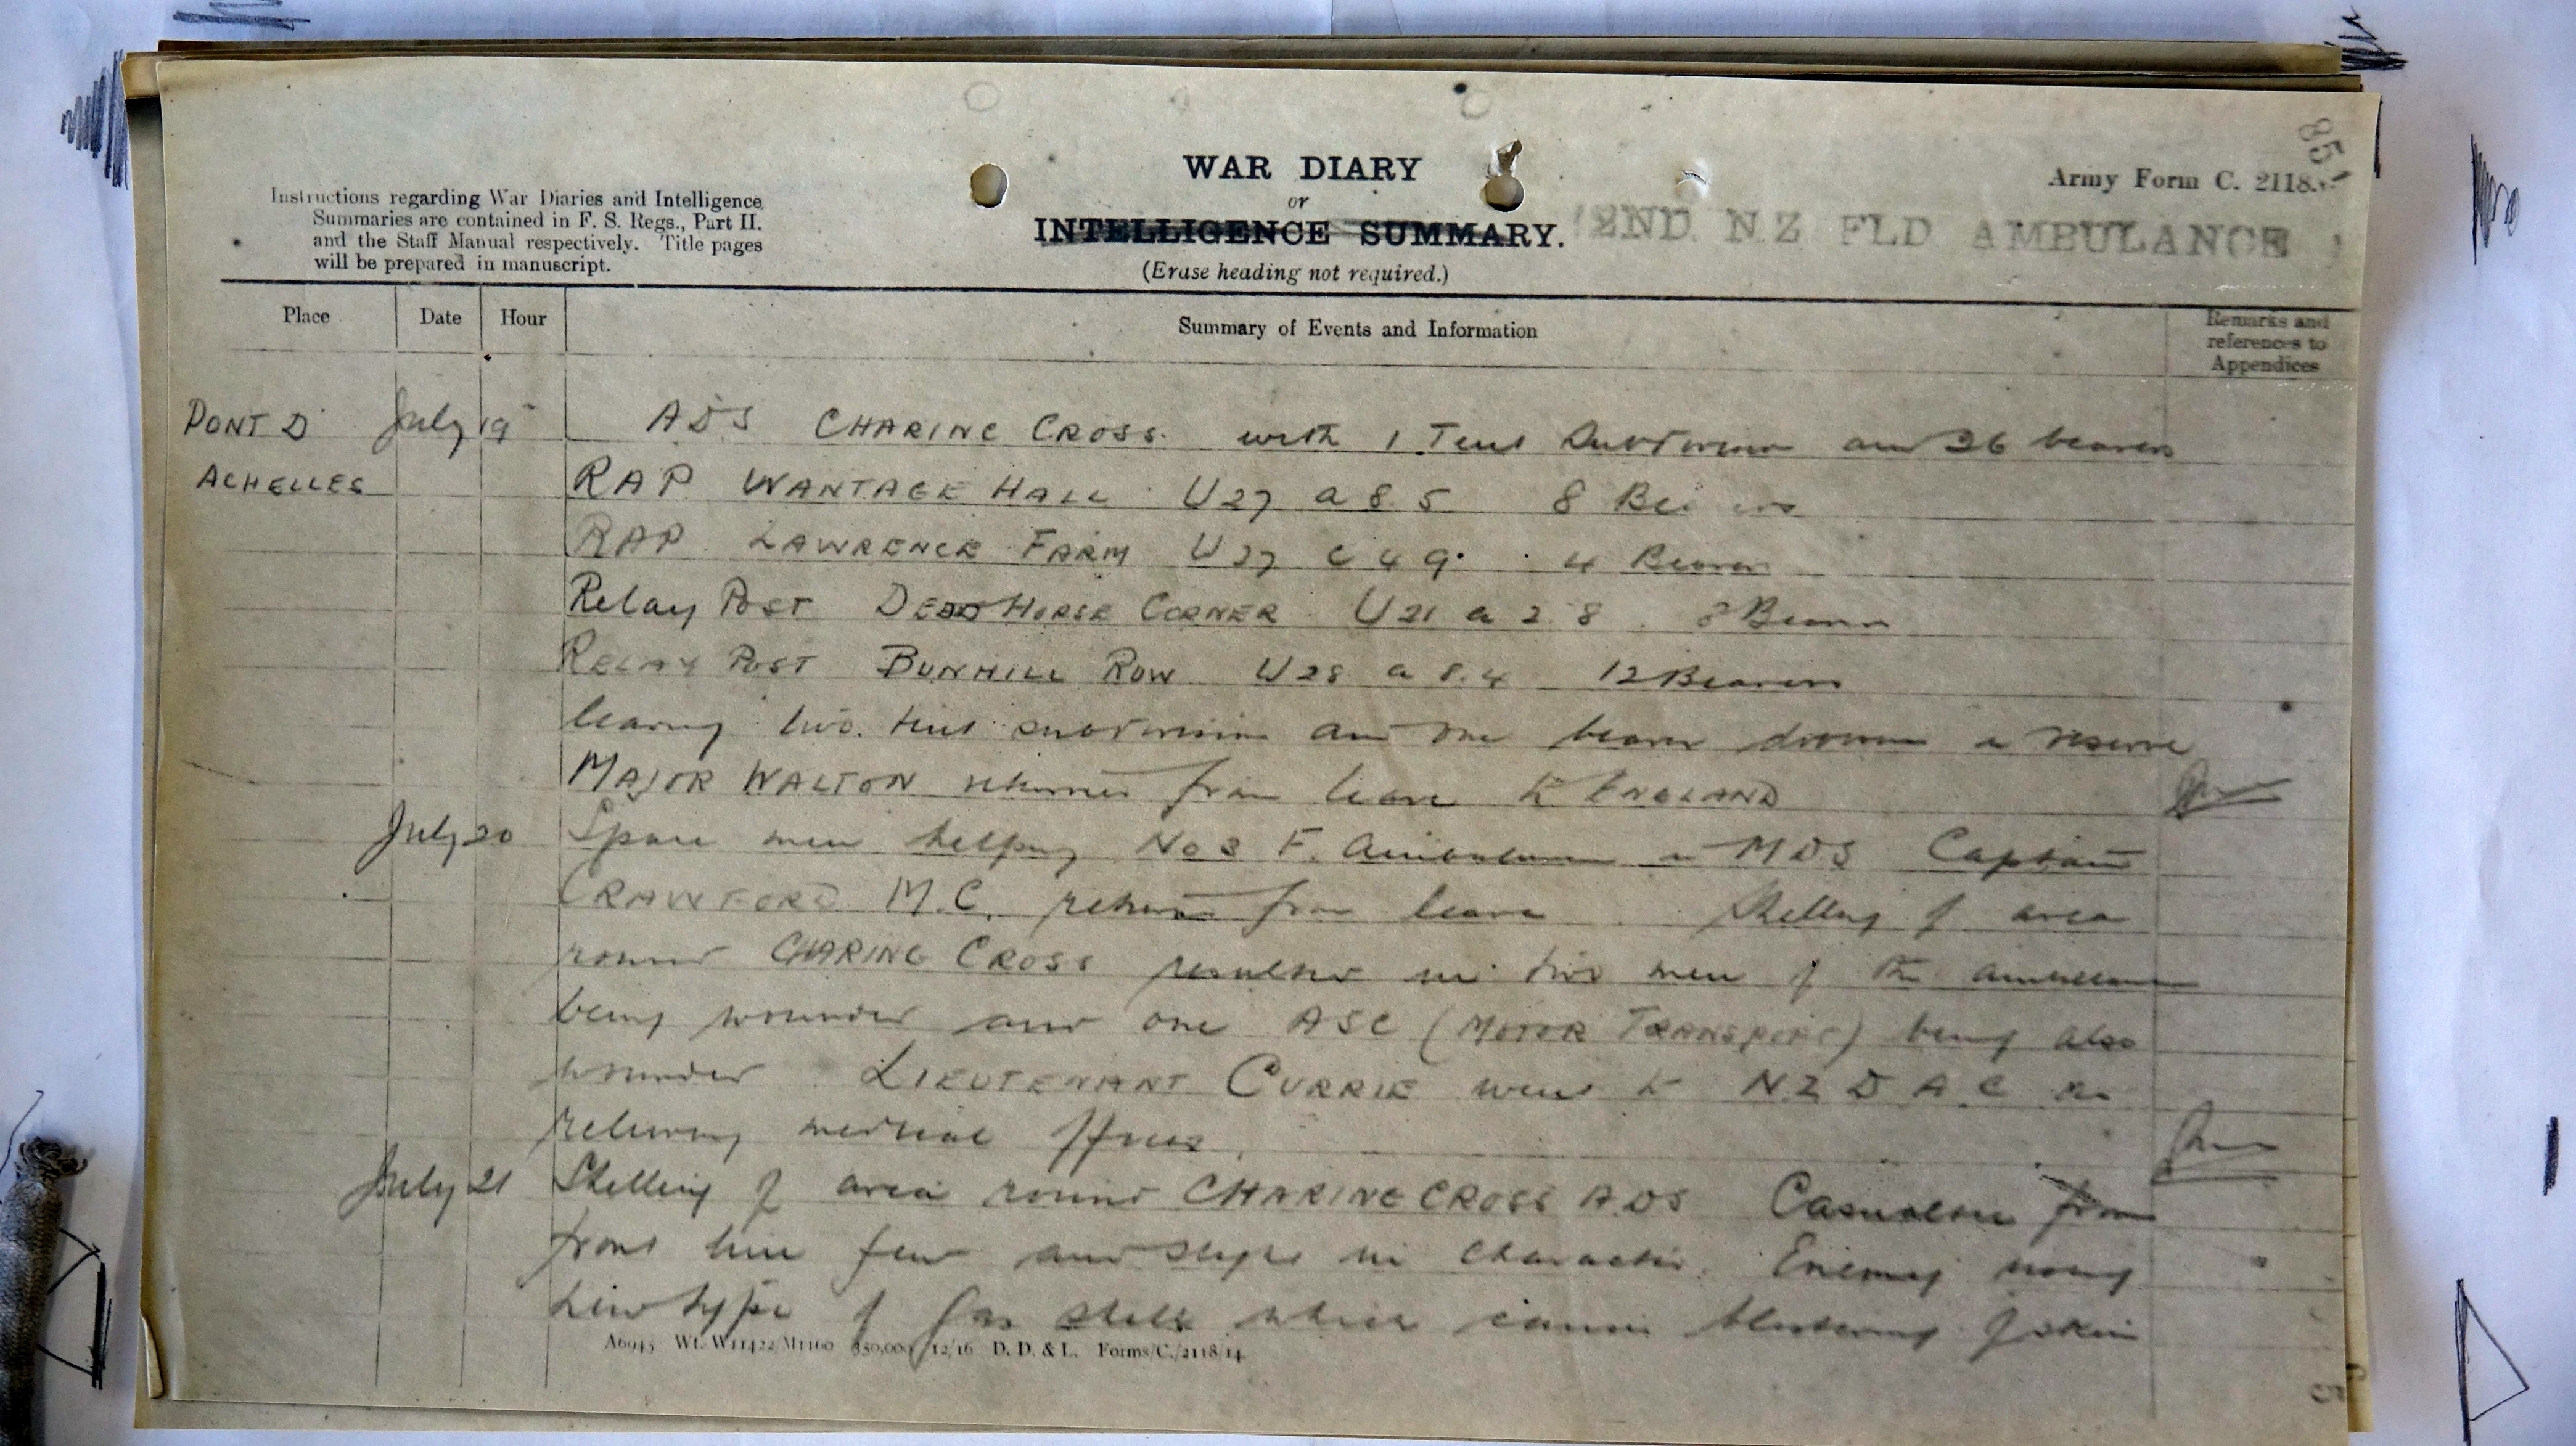 851
Army Form C. 2118.
WAR DIARY
or
INTELLIGENCE SUMMARY.
2ND. NZ FLD AMBULANCE
(Erase heading not required.)
Instructions regarding War Diaries and Intelligence
Summaries are contained in F. S. Regs., Part II.
and the Staff Manual respectively. Title pages
will be prepared in manuscript.
Place Date Hour Summary of Events and Information Remarks and
references to
Appendices
PONT D' July 19 ADS CHARING CROSS. with 1 Tent Subdivision and 36 bearers
ACHELLES RAP WANTAGE HALL U27 a 8.5 8 Bearers
RAP LAWRENCE FARM U27 c 4 9. 4 Bearers
Relay Post DEAD HORSE CORNER U21 a 2 8. 8 Bearers
RELAY POST BUNHILL ROW U28 a 8.4 12 Bearers
leaving two tent subdivisions and one bearer division in reserve
MAJOR WALTON returned from leave to ENGLAND
July 20 Spare men helping No 3 F. Ambulance in MDS Captain
CRAWFORD M.C. returned from leave Shelling of area
round CHARING CROSS resulted in two men of the ambulance
being wounded and one ASC (MOTOR TRANSPORT) being also
wounded. LIEUTENANT CURRIE went to NZ D A C as
relieving medical officer.
July 21 Shelling of area round CHARING CROSS ADS Casualties from
front line few and slight in character. Enemy using
new type of Gas shell which causes blistering of skin
A6945 Wt. W11422/M1160 350,000 12/16 D. D. & L. Forms/C./2118/14.